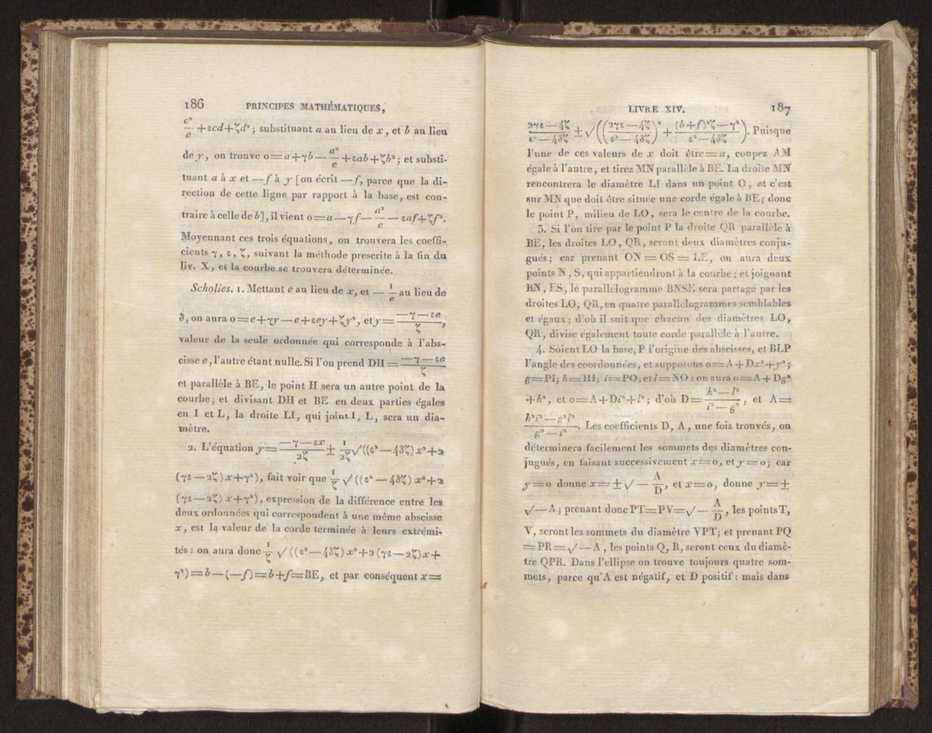 186 PRINCIPES MATHÉMATIQUES,
c²/e + εcd + ζd² ; substituant a au lieu de x, et b au lieu
de y, on trouve o = a + γb — a²/e + εab + ζb² ; et substi-
tuant a à x et — f à y [on écrit — f, parce que la di-
rection de cette ligne par rapport à la base, est con-
traire à celle de b], il vient o = a — γf — a²/e — εaf + ζf².
Moyennant ces trois équations, on trouvera les coeffi-
cients γ, ε, ζ, suivant la méthode prescrite à la fin du
liv. X, et la courbe se trouvera déterminée.
Scholies. 1. Mettant e au lieu de x, et — 1/e au lieu de
δ, on aura o = e + γy — e + εey + ζy², et y = (—γ — εe)/ζ,
valeur de la seule ordonnée qui corresponde à l'abs-
cisse e, l'autre étant nulle. Si l'on prend DH = (—γ — εe)/ζ
et parallèle à BE, le point H sera un autre point de la
courbe ; et divisant DH et BE en deux parties égales
en I et L, la droite LI, qui joint I, L, sera un dia-
mètre.
2. L'équation y = (—γ — εx)/2ζ ± 1/2ζ √((ε² — 4δζ) x² + 2
(γε — 2ζ) x + γ²), fait voir que 1/ζ √((ε² — 4δζ) x² + 2
(γε — 2ζ) x + γ²), expression de la différence entre les
deux ordonnées qui correspondent à une même abscisse
x, est la valeur de la corde terminée à leurs extrémi-
tés : on aura donc 1/ζ √((ε² — 4δζ) x² + 2 (γε — 2ζ) x +
γ²) = b — (—f) = b + f = BE, et par conséquent x =
LIVRE XIV. 187
(2γε — 4ζ)/(ε² — 4δζ) ± √(((2γε — 4ζ)/(ε² — 4δζ))² + ((b + f)²ζ — γ²)/(ε² — 4δζ)). Puisque
l'une de ces valeurs de x doit être = a, coupez AM
égale à l'autre, et tirez MN parallèle à BE. La droite MN
rencontrera le diamètre LI dans un point O, et c'est
sur MN que doit être située une corde égale à BE ; donc
le point P, milieu de LO, sera le centre de la courbe.
3. Si l'on tire par le point P la droite QR parallèle à
BE, les droites LO, QR, seront deux diamètres conju-
gués ; car prenant ON = OS = LE, on aura deux
points N, S, qui appartiendront à la courbe ; et joignant
BN, ES, le parallélogramme BNSE sera partagé par les
droites LO, QR, en quatre parallélogrammes semblables
et égaux ; d'où il suit que chacun des diamètres LO,
QR, divise également toute corde parallèle à l'autre.
4. Soient LO la base, P l'origine des abscisses, et BLP
l'angle des coordonnées, et supposons o = A + Dx² + y² ;
g = PI ; h = HI, i = PO, et l = NO : on aura o = A + Dg²
+ h², et o = A + Di² + l² ; d'où D = (h² — l²)/(i² — g²), et A =
(h²i² — g²l²)/(g² — i²). Les coefficients D, A, une fois trouvés, on
déterminera facilement les sommets des diamètres con-
jugués, en faisant successivement x = o, et y = o ; car
y = o donne x = ± √ — A/D, et x = o, donne y = ±
√ — A ; prenant donc PT = PV = √ — A/D, les points T,
V, seront les sommets du diamètre VPT ; et prenant PQ
= PR = √ — A, les points Q, R, seront ceux du diamè-
tre QPR. Dans l'ellipse on trouve toujours quatre som-
mets, parce qu'A est négatif, et D positif : mais dans